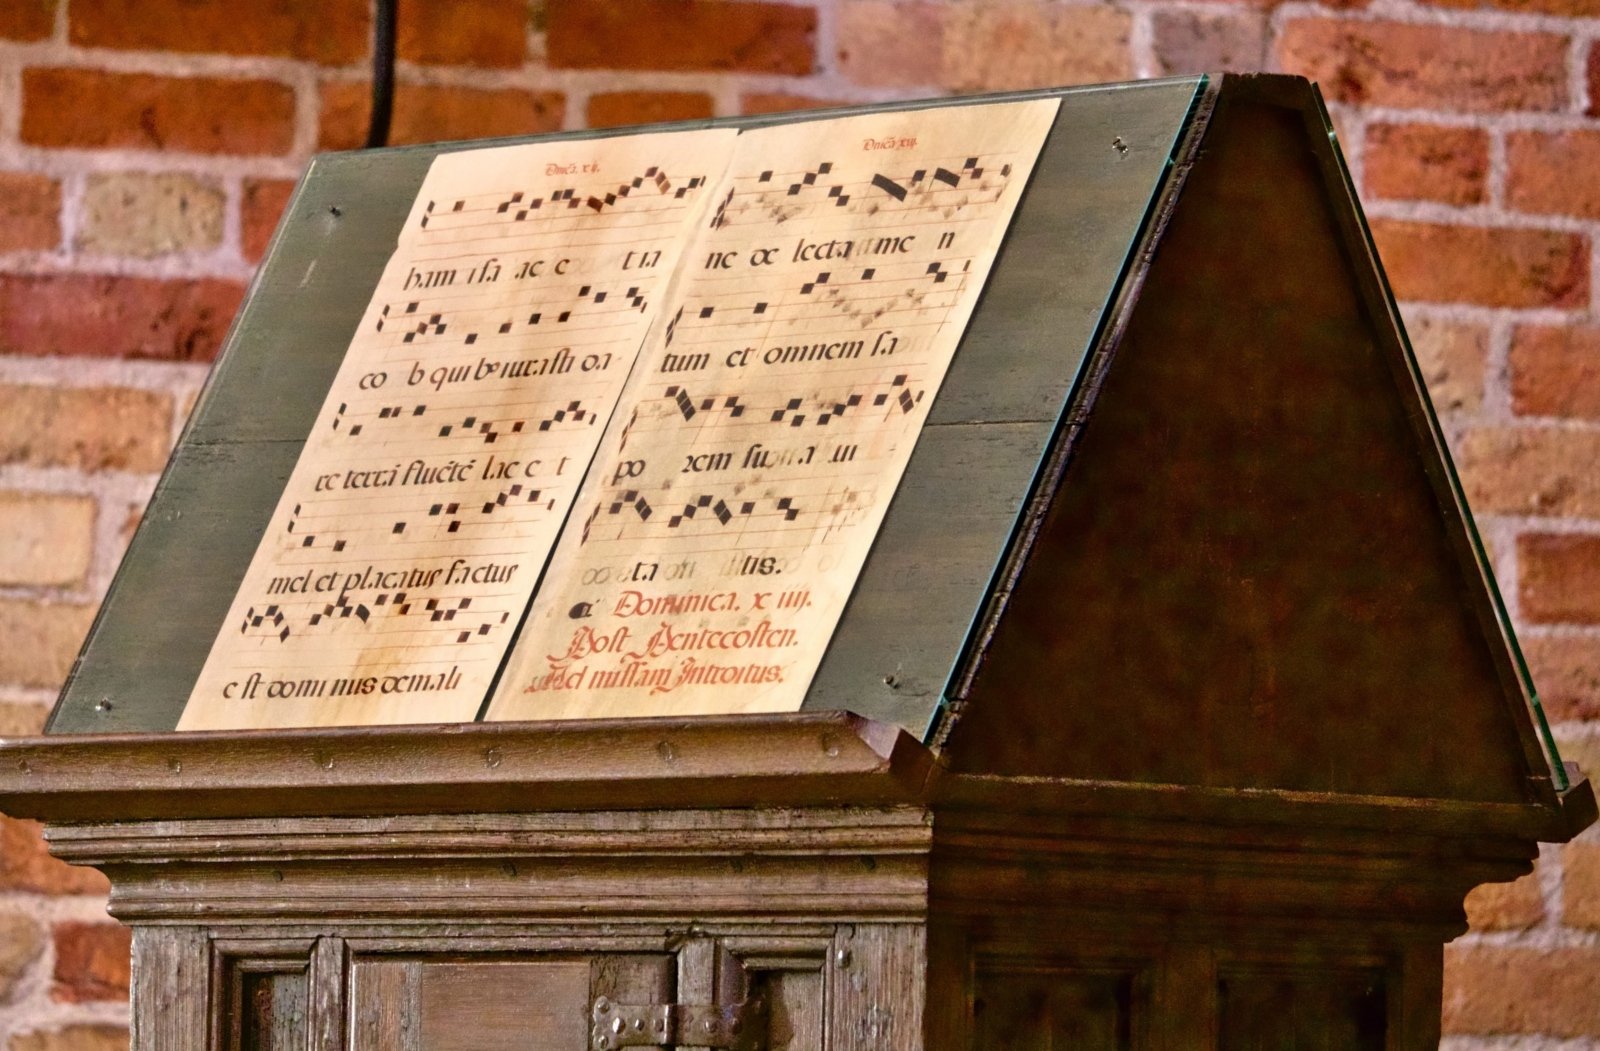 Dnīcā. xij.
bam isa ac e t ia
co b qui bꝰ iurasti da
re terrā fluētē lac e t
mel et placatus factus
e st domi nus de mali
Dnīcā xiij.
ne de lecta me n
tum et omnem sa
po rem sua ui
ta tis.
Dominica. x iiij.
Post Pentecosten.
Ad missam Introitus.